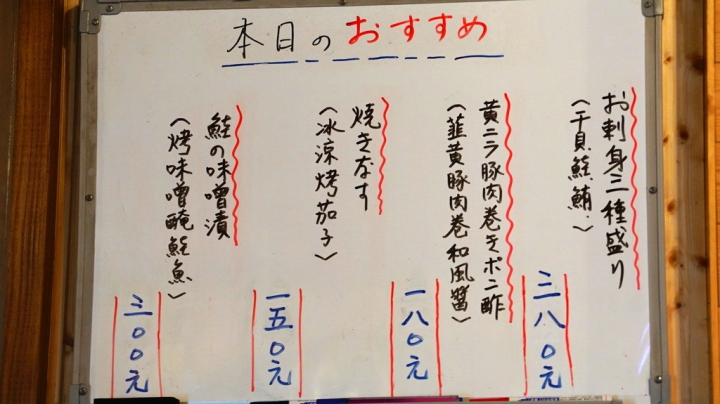 本日のおすすめ
お刺身三種盛り
(干貝、鮭、鮪)
三八〇元
黄ニラ豚肉巻きポン酢
(韮黄豚肉巻和風醬)
一八〇元
焼きなす
(冰涼烤茄子)
一五〇元
鮭の味噌漬
(烤味噌醃鮭魚)
三〇〇元